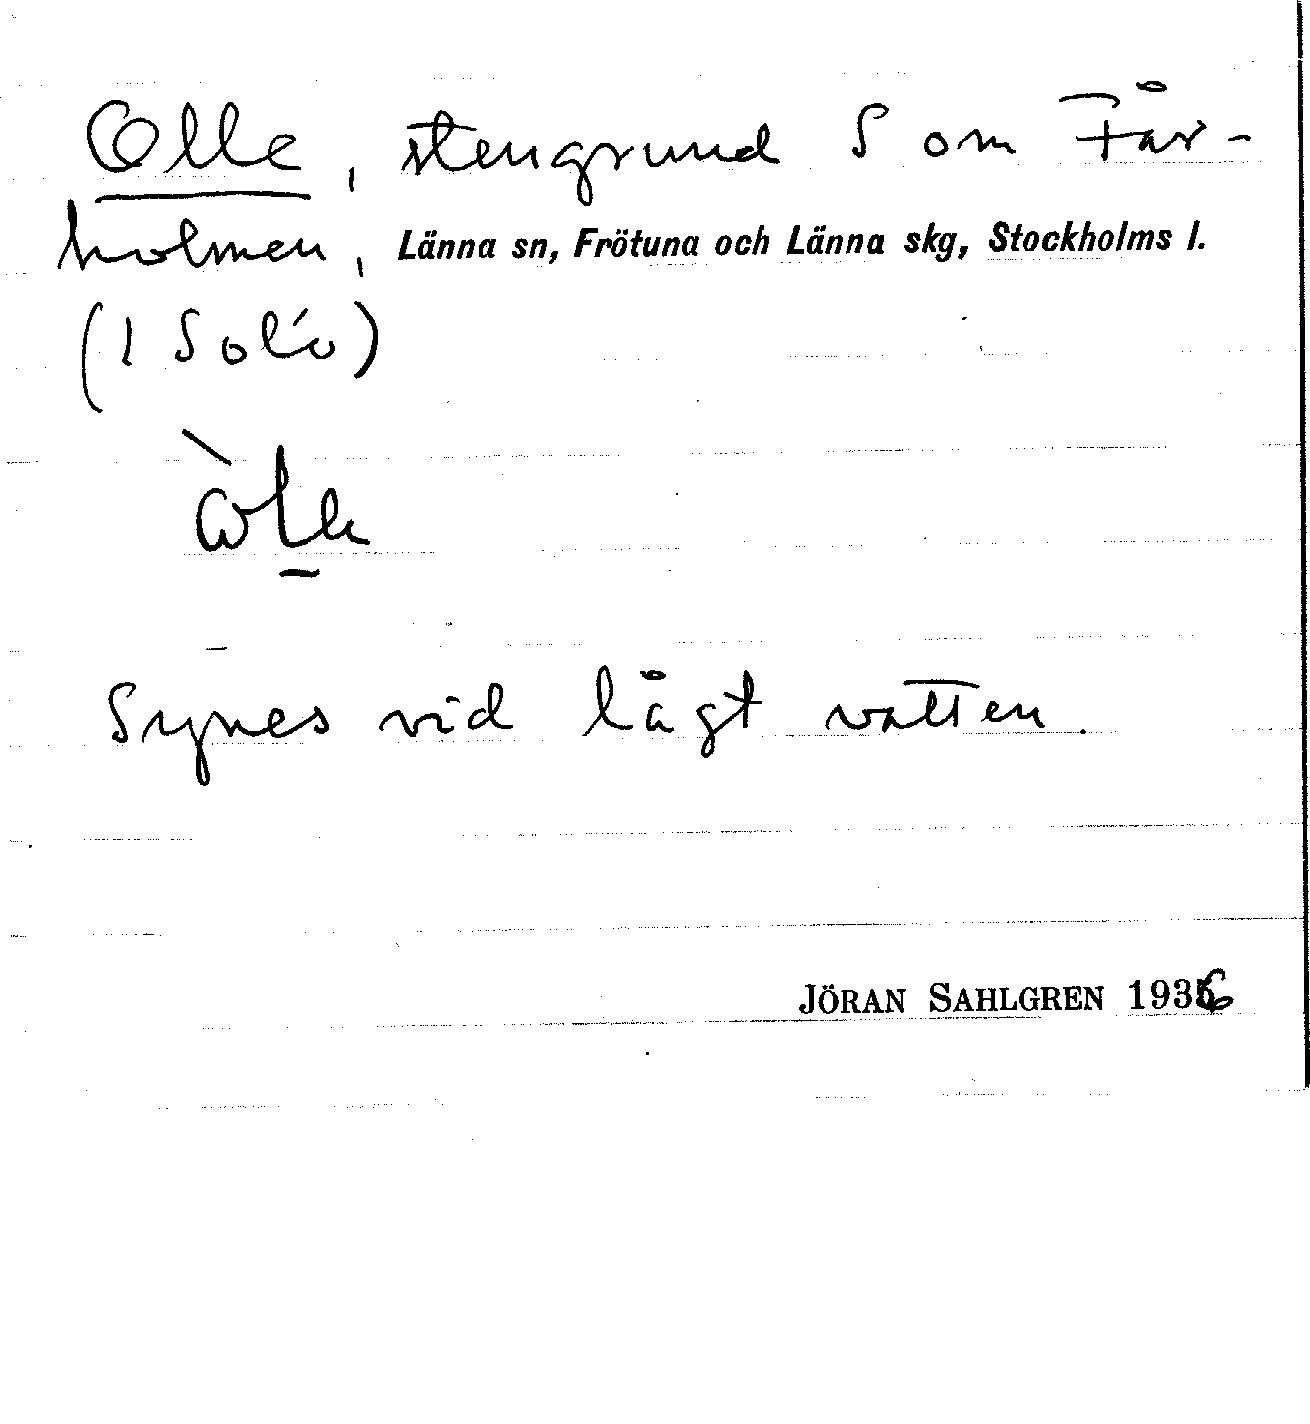 Olle, stengrund S om Får-
holmen, Länna sn, Frötuna och Länna skg, Stockholms l.
(I Solö)
Synes vid lågt vatten.
JÖRAN SAHLGREN 1936